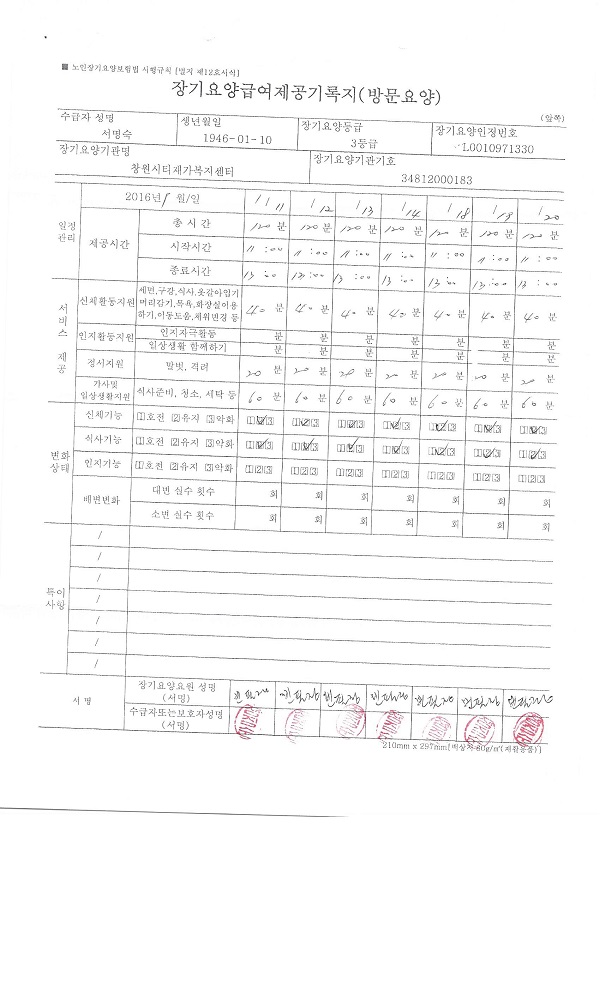 ■ 노인장기요양보험법 시행규칙 [별지 제12호서식]
장기요양급여제공기록지(방문요양)
(앞쪽)
수급자 성명 생년월일 장기요양등급 장기요양인정번호
서명숙 1946-01-10 3등급 L0010971330
장기요양기관명 장기요양기관기호
창원시티재가복지센터 34812000183
일정관리 2016년 1 월/일 1/11 1/12 1/13 1/14 1/18 1/19 1/20
제공시간 총 시 간 120 분 120 분 120 분 120 분 120 분 120 분 120 분
시작시간 11:00 11:00 11:00 11:00 11:00 11:00 11:00
종료시간 13:00 13:00 13:00 13:00 13:00 13:00 13:00
서비스 제공
신체활동지원 세면,구강,식사,옷갈아입기 머리감기,목욕,화장실이용 하기,이동도움,체위변경 등 40 분 40 분 40 분 40 분 40 분 40 분 40 분
인지활동지원 인지자극활동 분 분 분 분 분 분 분
일상생활 함께하기 분 분 분 분 분 분 분
정서지원 말벗, 격려 20 분 20 분 20 분 20 분 20 분 20 분 20 분
가사및 일상생활지원 식사준비, 청소, 세탁 등 60 분 60 분 60 분 60 분 60 분 60 분 60 분
변화상태
신체기능 1호전 2유지 3악화 123 123 123 123 123 123 123
식사기능 1호전 2유지 3악화 123 123 123 123 123 123 123
인지기능 1호전 2유지 3악화 123 123 123 123 123 123 123
배변변화 대변 실수 횟수 회 회 회 회 회 회 회
소변 실수 횟수 회 회 회 회 회 회 회
특이사항
/
/
/
/
/
/
/
서 명 장기요양요원 성명
(서명)
수급자또는보호자성명
(서명)
210mm x 297mm[백상지 80g/㎡(재활용품)]